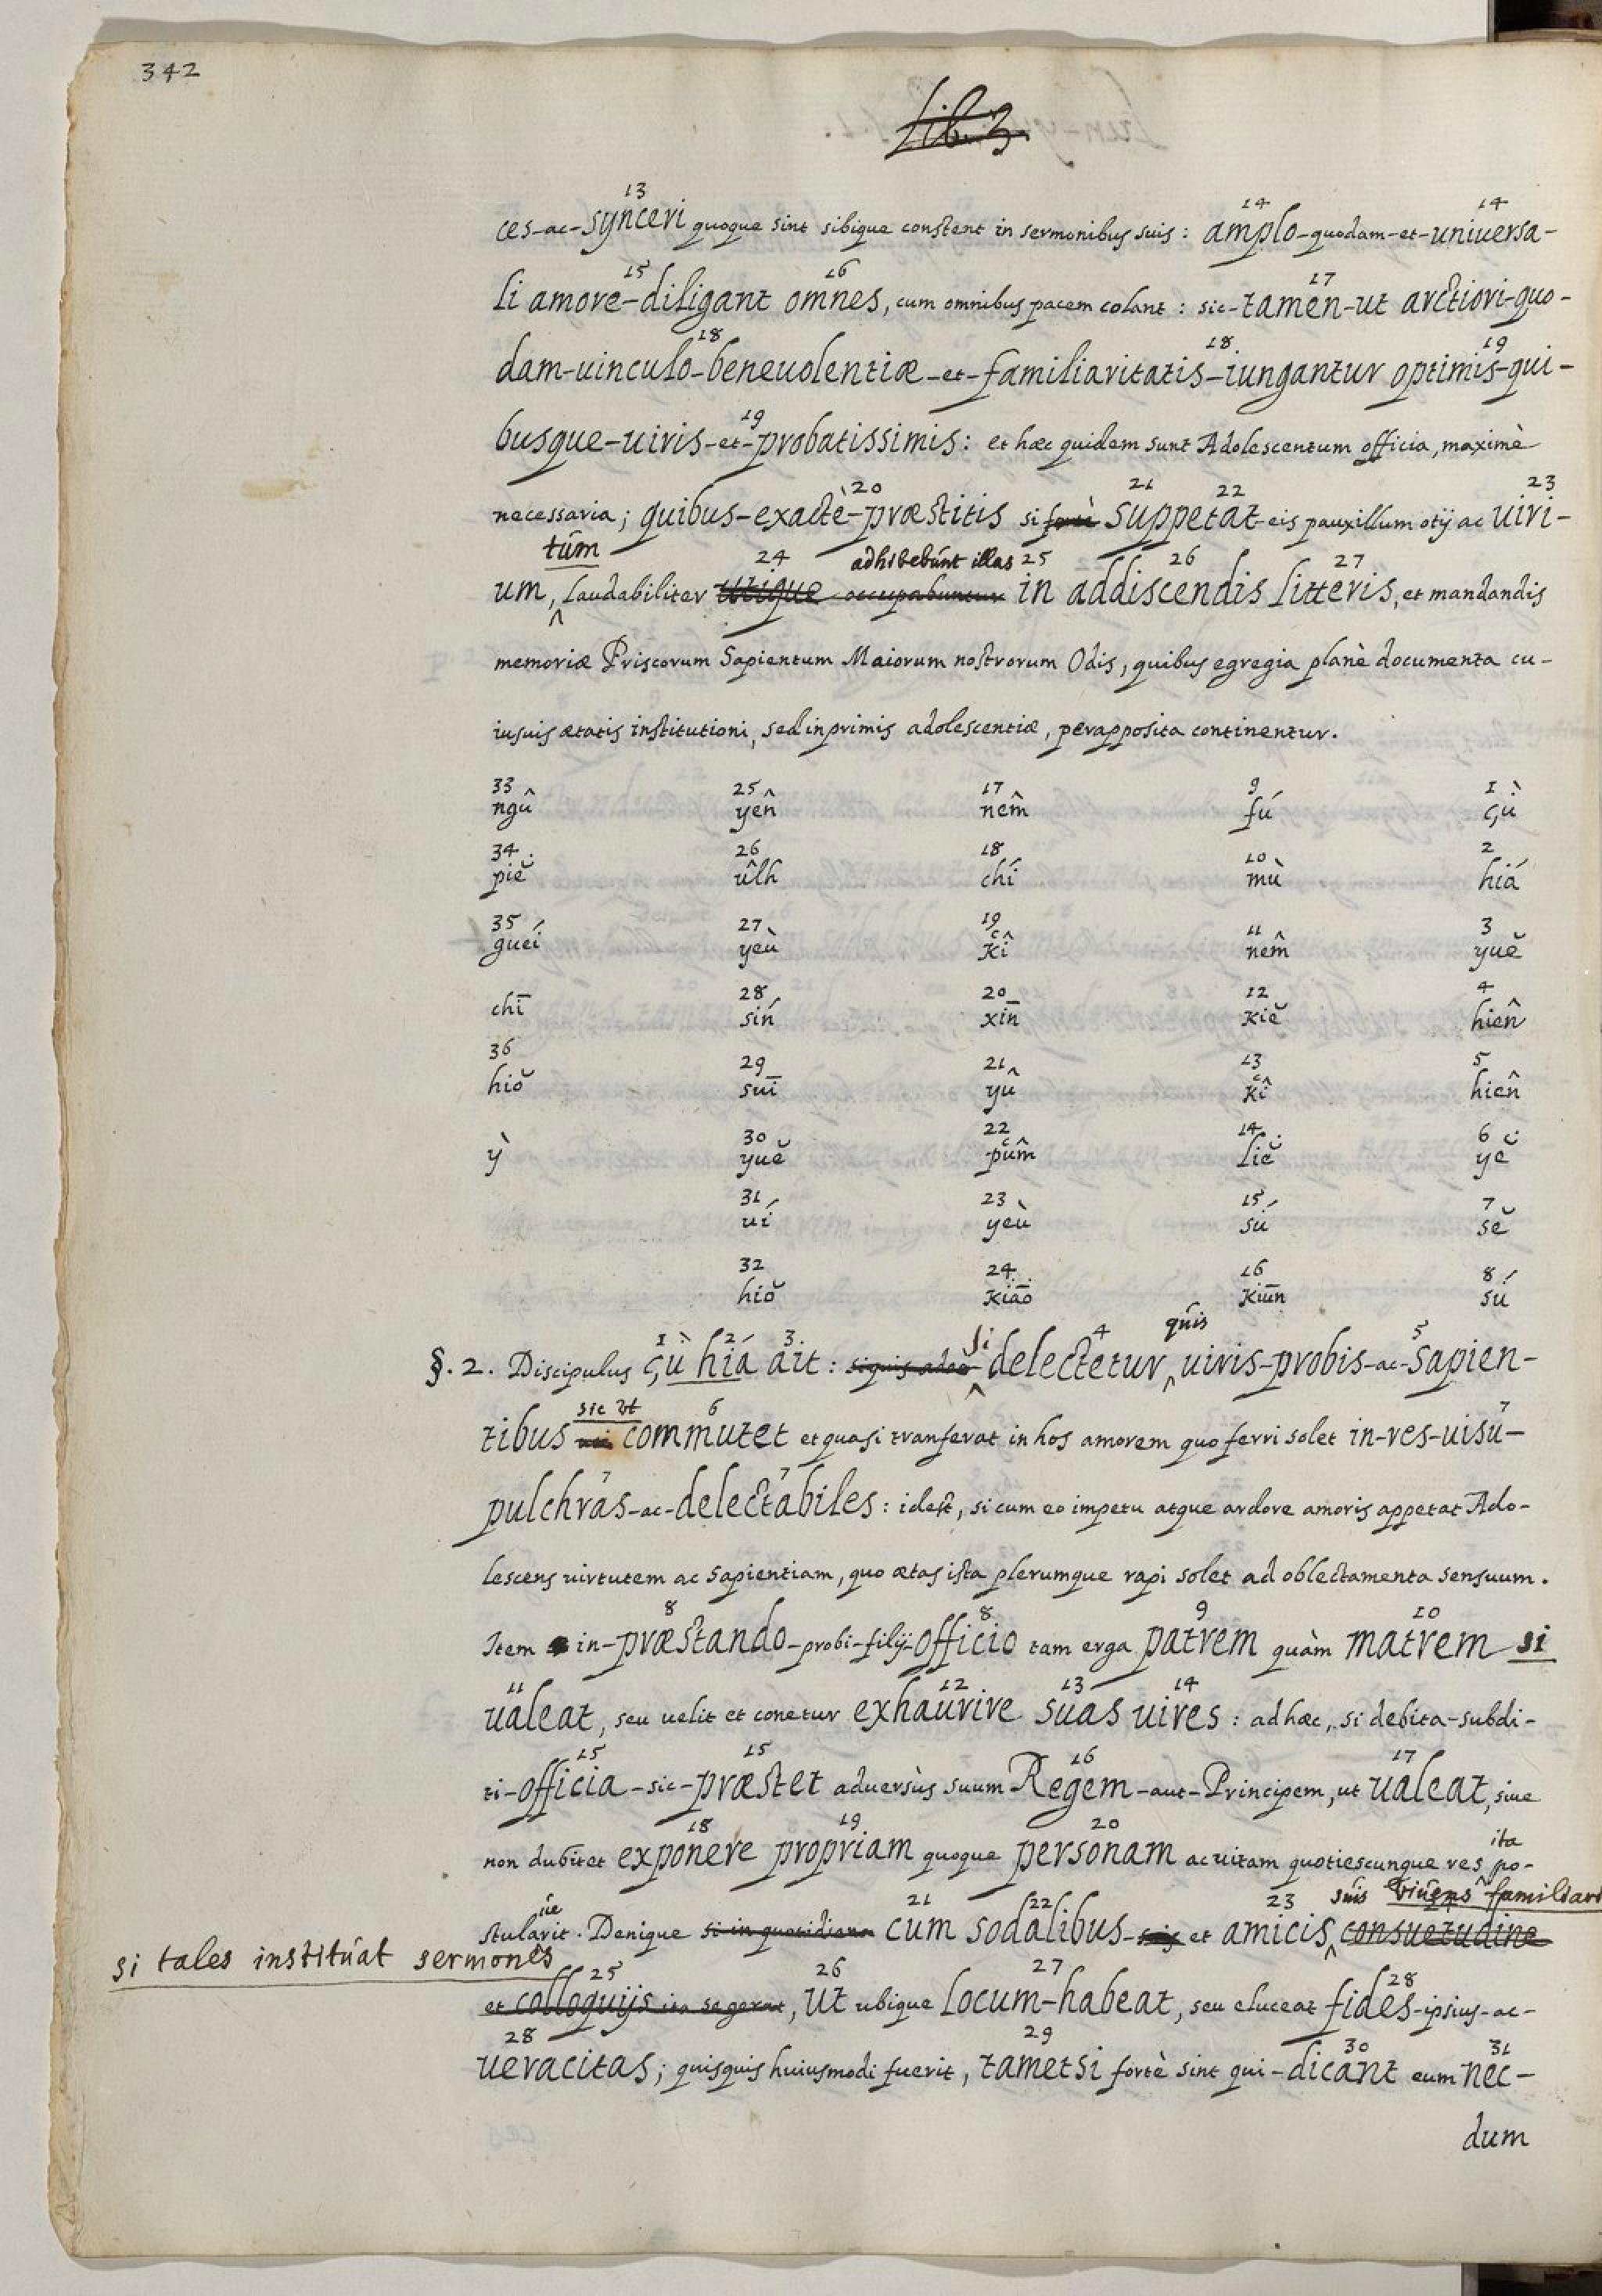 342
Lib. 3
13 14 14
ces-ac-synceri quoque sint sibique constent in sermonibus suis: amplo-quodam-et-uniuersa-
15 16 17
li amore-diligant omnes, cum omnibus pacem colant: sic-tamen-ut arctiori-quo-
18 18 19
dam-uinculo-beneuolentiæ-et-familiaritatis-iungantur optimis-qui-
19
busque-uiris-et-probatissimis: et hæc quidem sunt Adolescentum officia, maximè
20 21 22 23
necessaria; quibus-exactè-præstitis si forte suppetat eis pauxillum otij ac uiri-
tum 24 adhibebunt illas 25 26 27
um, laudabiliter utique occupabuntur in addiscendis litteris, et mandandis
memoriæ Priscorum Sapientum Maiorum nostrorum Odis, quibus egregia planè documenta cu-
iusuis ætatis institutioni, sed inprimis adolescentiæ, perapposita continentur.
33 25 17 9 1
ngû yên nêm fú çù
34 26 18 10 2
piĕ ûlh chí mù hiá
35 27 19 11 3
gueí yeù kî nêm yuĕ
28 20 12 4
chī sín xīn kiĕ hiên
36 29 21 13 5
hiŏ suī yû kî hiên
30 22 14 6
ỳ yuĕ pûm liĕ yĕ
31 23 15 7
uí yeù sú sĕ
32 24 16 8
hiŏ kiāo kiūn sú
1 2 3 si 4 quis 5
§. 2. Discipulus çù hiá ait: siquis adeo delectetur uiris-probis-ac-sapien-
sic ut 6 7
tibus uti commutet et quasi tranferat in hos amorem quo ferri solet in-res-uisu-
7 7
pulchras-ac-delectabiles: idest, si cum eo impetu atque ardore amoris appetat Ado-
lescens uirtutem ac sapientiam, quo ætas ista plerumque rapi solet ad oblectamenta sensuum.
8 8 9 10
Item in-præstando-probi-filij-officio tam erga patrem quàm matrem si
11 12 13 14
ualeat, seu uelit et conetur exhaurire suas uires: ad hæc, si debita-subdi-
15 15 16 17
ti-officia-sic-præstet aduersùs suum Regem-aut-Principem, ut ualeat, siue
18 19 20 ita
non dubitet exponere propriam quoque personam ac uitam quotiescunque res po-
21 22 23 suis vivens familiari
stularit. Denique si in quotidiana cum sodalibus-suis et amicis consuetudine
si tales instituat sermones
25 26 27 28
et colloquijs ita se gerat, ut ubique locum-habeat, seu eluceat fides-ipsius-ac-
28 29 30 31
ueracitas; quisquis huiusmodi fuerit, tametsi fortè sint qui-dicant eum nec-
dum